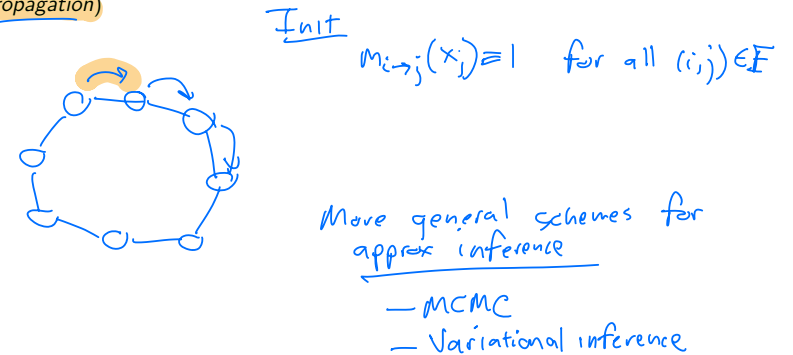 ropagation)
Init
m_{i→j}(x_j) ≡ 1 for all (i,j) ∈ E
More general schemes for
approx inference
— MCMC
— Variational inference